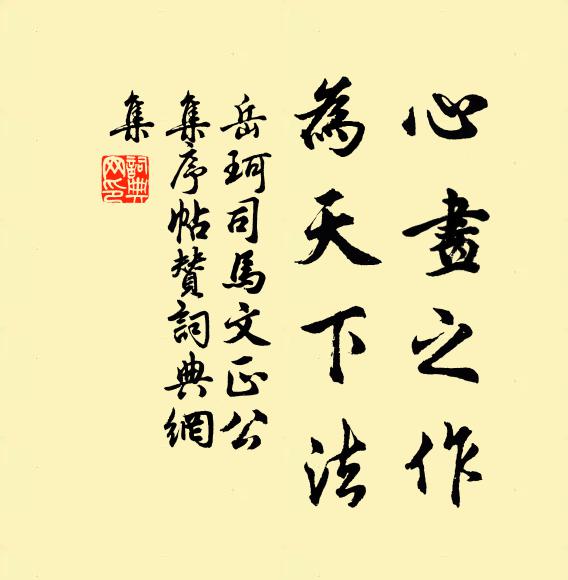 心畫之作
為天下法
岳珂司馬文正公
集序帖贊詞典網
集
詞典網印